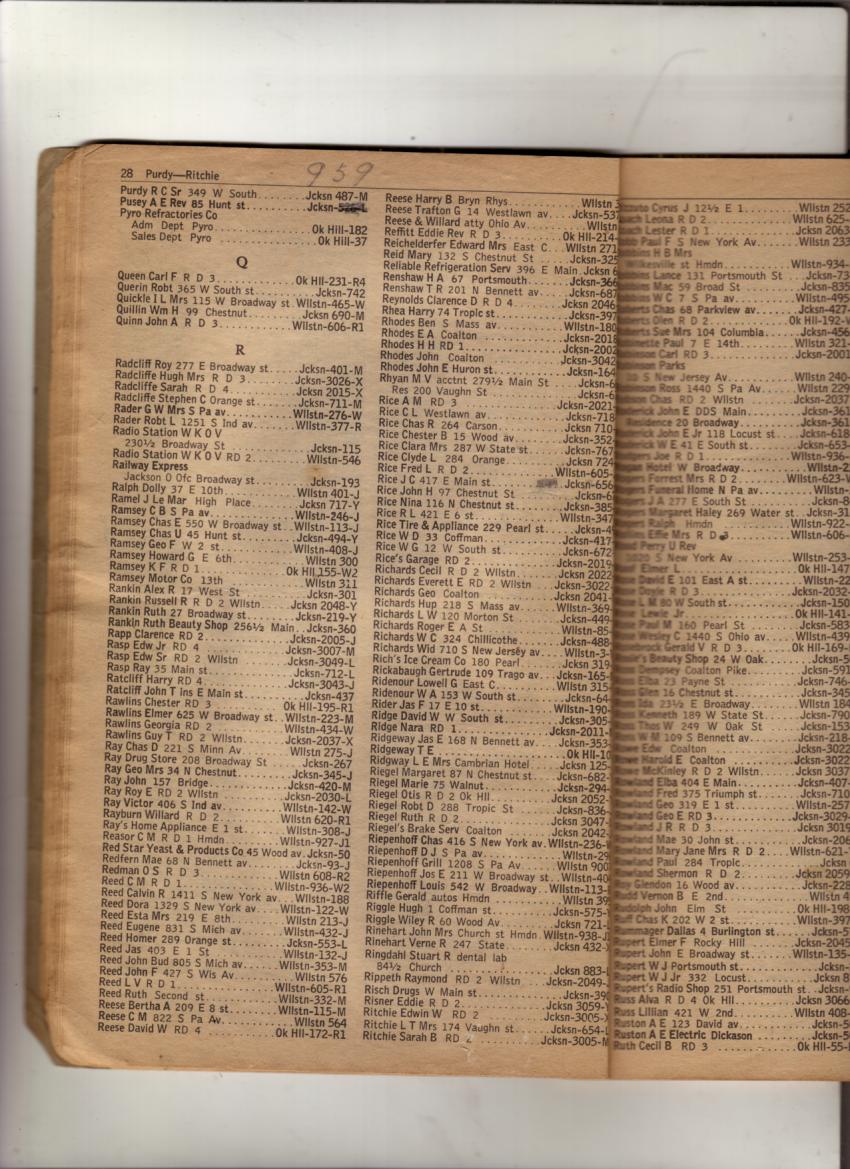 28 Purdy—Ritchie
959
Purdy R C Sr 349 W South Jcksn 487-M
Pusey A E Rev 85 Hunt st Jcksn-
Pyro Refractories Co
Adm Dept Pyro Ok Hill-182
Sales Dept Pyro Ok Hill-37
Q
Queen Carl F R D 3 Ok Hill-231-R4
Querin Robt 365 W South st Jcksn-742
Quickle I L Mrs 115 W Broadway st Wllstn-465-W
Quillin Wm H 99 Chestnut Jcksn 690-M
Quinn John A R D 3 Wllstn-606-R1
R
Radcliff Roy 277 E Broadway st Jcksn-401-M
Radcliffe Hugh Mrs R D 3 Jcksn-3026-X
Radcliffe Sarah R D 4 Jcksn 2015-X
Radcliffe Stephen C Orange st Jcksn-711-M
Rader G W Mrs S Pa av Wllstn-276-W
Rader Robt L 1251 S Ind av Wllstn-377-R
Radio Station W K O V
230½ Broadway St Jcksn-115
Radio Station W K O V RD 2 Wllstn-546
Railway Express
Jackson O Ofc Broadway st Jcksn-193
Ralph Dolly 37 E 10th Wllstn 401-J
Ramel J Le Mar High Place Jcksn 717-Y
Ramsey C B S Pa av Wllstn-246-J
Ramsey Chas E 550 W Broadway st Wllstn-113-J
Ramsey Chas U 45 Hunt st Jcksn-494-Y
Ramsey Geo F W 2 st Wllstn-408-J
Ramsey Howard G E 6th Wllstn 300
Ramsey K F R D 1 Ok Hll 155-W2
Ramsey Motor Co 13th Wllstn 311
Rankin Alex R 17 West St Jcksn-301
Rankin Russell R R D 2 Wllstn Jcksn 2048-Y
Rankin Ruth 27 Broadway st Jcksn-219-Y
Rankin Ruth Beauty Shop 256½ Main Jcksn-360
Rapp Clarence RD 2 Jcksn-2005-J
Rasp Edw Jr RD 4 Jcksn-3007-M
Rasp Edw Sr RD 2 Wllstn Jcksn-3049-L
Rasp Ray 35 Main st Jcksn-712-L
Ratcliff Harry RD 4 Jcksn-3043-J
Ratcliff John T ins E Main st Jcksn-437
Rawlins Chester RD 3 Ok Hill-195-R1
Rawlins Elmer 625 W Broadway st Wllstn-223-M
Rawlins Georgia RD 2 Wllstn-434-W
Rawlins Guy T RD 2 Wllstn Jcksn-2037-X
Ray Chas D 221 S Minn Av Wllstn 275-J
Ray Drug Store 208 Broadway St Jcksn-267
Ray Geo Mrs 34 N Chestnut Jcksn-345-J
Ray John 157 Bridge Jcksn-420-M
Ray Roy E RD 2 Wllstn Jcksn-2030-L
Ray Victor 406 S Ind av Wllstn-142-W
Rayburn Willard R D 2 Wllstn 620-R1
Ray's Home Appliance E 1 st Wllstn-308-J
Reasor C M R D 1 Hmdn Wllstn-927-J1
Red Star Yeast & Products Co 45 Wood av Jcksn-50
Redfern Mae 68 N Bennett av Jcksn-93-J
Redman O S R D 3 Wllstn 608-R2
Reed C M R D 1 Wllstn-936-W2
Reed Calvin R 1411 S New York av Wllstn-188
Reed Dora 1329 S New York av Wllstn-122-W
Reed Esta Mrs 219 E 8th Wllstn 213-J
Reed Eugene 831 S Mich av Wllstn-432-J
Reed Homer 289 Orange st Jcksn-553-L
Reed Jas 403 E 1 St Wllstn-132-J
Reed John Bud 805 S Mich av Wllstn-353-M
Reed John F 427 S Wis Av Wllstn 576
Reed L V R D 1 Wllstn-605-R1
Reed Ruth Second st Wllstn-332-M
Reese Bertha A 209 E 8 st Wllstn-115-M
Reese C M 822 S Pa Av Wllstn 564
Reese David W RD 4 Ok Hll-172-R1
Reese Harry B Bryn Rhys Wllstn
Reese Trafton G 14 Westlawn av Jcksn-53
Reese & Willard atty Ohio Av Wllstn
Reffitt Eddie Rev R D 3 Ok Hill-214-
Reichelderfer Edward Mrs East C Wllstn 271
Reid Mary 132 S Chestnut St Jcksn-325
Reliable Refrigeration Serv 396 E Main Jcksn 6
Renshaw H A 67 Portsmouth Jcksn-366
Renshaw T R 201 N Bennett av Jcksn-687
Reynolds Clarence D R D 4 Jcksn 2046
Rhea Harry 74 Tropic st Jcksn-397
Rhodes Ben S Mass av Wllstn-180
Rhodes E A Coalton Jcksn-2018
Rhodes H H RD 1 Jcksn-2002
Rhodes John Coalton Jcksn-3042
Rhodes John E Huron st Jcksn-164
Rhyan M V acctnt 279½ Main St Jcksn-6
Res 200 Vaughn St Jcksn-6
Rice A M RD 3 Jcksn-2021
Rice C L Westlawn av Jcksn-718
Rice Chas R 264 Carson Jcksn 710
Rice Chester B 15 Wood av Jcksn-352
Rice Clara Mrs 287 W State st Jcksn-767
Rice Clyde L 284 Orange Jcksn 724
Rice Fred L R D 2 Wllstn-605-
Rice J C 417 E Main st Jcksn-656
Rice John H 97 Chestnut St Jcksn-6
Rice Nina 116 N Chestnut st Jcksn-385
Rice R L 421 E 6 st Wllstn-347
Rice Tire & Appliance 229 Pearl st Jcksn-4
Rice W D 33 Coffman Jcksn-417
Rice W G 12 W South st Jcksn-672
Rice's Garage RD 2 Jcksn-2019
Richards Cecil R D 2 Wllstn Jcksn 2022
Richards Everett E RD 2 Wllstn Jcksn-3022
Richards Geo Coalton Jcksn 2041
Richards Hup 218 S Mass av Wllstn-369
Richards L W 120 Morton St Jcksn-449
Richards Roger E A St Wllstn-85
Richards W C 324 Chillicothe Jcksn-488
Richards Wid 710 S New Jersey av Wllstn-3
Rich's Ice Cream Co 180 Pearl Jcksn 319
Rickabaugh Gertrude 109 Trago av Jcksn-165
Ridenour Lowell G East C Wllstn 315
Ridenour W A 153 W South st Jcksn-64
Rider Jas F 17 E 10 st Wllstn-190
Ridge David W W South st Jcksn-305
Ridge Nara RD 1 Jcksn-2011
Ridgeway Jas E 168 N Bennett av Jcksn-353
Ridgeway T E Ok Hll-10
Ridgway L E Mrs Cambrian Hotel Jcksn 125
Riegel Margaret 87 N Chestnut st Jcksn-682
Riegel Marie 75 Walnut Jcksn-294
Riegel Otis R D 2 Ok Hill Jcksn 2052
Riegel Robt D 288 Tropic St Jcksn-836
Riegel Ruth R D 2 Jcksn 3047
Riegel's Brake Serv Coalton Jcksn 2042
Riepenhoff Chas 416 S New York av Wllstn-236
Riepenhoff D J S Pa av Wllstn-29
Riepenhoff Grill 1208 S Pa Av Wllstn 900
Riepenhoff Jos E 211 W Broadway st Wllstn-40
Riepenhoff Louis 542 W Broadway Wllstn-113
Riffle Gerald autos Hmdn Wllstn 39
Riggle Hugh 1 Coffman st Jcksn-575
Riggle Wiley R 60 Wood Av Jcksn 721
Rinehart John Mrs Church st Hmdn Wllstn-938
Rinehart Verne R 247 State Jcksn 432
Ringdahl Stuart R dental lab
84½ Church Jcksn 883
Rippeth Raymond RD 2 Wllstn Jcksn-2049
Risch Drugs W Main st Jcksn-39
Risner Eddie R D 2 Jcksn 3059
Ritchie Edwin W RD 2 Jcksn-3005
Ritchie L T Mrs 174 Vaughn st Jcksn-654
Ritchie Sarah B RD 2 Jcksn-3005-M
Cyrus J 12½ E 1 Wllstn 252
Leona R D 2 Wllstn 625-
Lester R D 1 Jcksn 2063
Paul F S New York Av Wllstn 233
H B Mrs
Wilkesville st Hmdn Wllstn-934-
Lance 131 Portsmouth St Jcksn-73
Mac 59 Broad St Jcksn-835
W C 7 S Pa av Wllstn-495
Chas 68 Parkview av Jcksn-427
Glen R D 2 Ok Hill-192
Sue Mrs 104 Columbia Jcksn-456
Paul 7 E 14th Wllstn 321
Carl RD 3 Jcksn-2001
Parks
S New Jersey Av Wllstn 240
Ross 1440 S Pa Av Wllstn 229
Chas RD 2 Wllstn Jcksn-2037
John E DDS Main Jcksn-361
Residence 20 Broadway Jcksn-361
John E Jr 118 Locust st Jcksn-618
W E 41 E South st Jcksn-653
Joe R D 1 Wllstn-936
Hotel W Broadway Wllstn-2
Forrest Mrs R D 2 Wllstn-623
Funeral Home N Pa av Wllstn-
J A 277 E South St Jcksn-8
Margaret Haley 269 Water st Jcksn-31
Ralph Hmdn Wllstn-922-
Effie Mrs R D 3 Wllstn-606-
Perry U Rev
S New York Av Wllstn-253
Elmer L Ok Hill-147
David E 101 East A st Wllstn-22
Doyle R D 3 Jcksn-2032
L M 80 W South st Jcksn-150
Lewie Jr Ok Hill-141
Paul M 160 Pearl St Jcksn-583
Wesley C 1440 S Ohio av Wllstn-439
Gerald V R D 3 Ok Hill-169
Beauty Shop 24 W Oak Jcksn-5
Dempsey Coalton Pike Jcksn-591
Elba 23 Payne St Jcksn-746
Glen 16 Chestnut st Jcksn-345
Ida 23½ E Broadway Wllstn 184
Kenneth 189 W State St Jcksn-790
Thos W 249 W Oak St Jcksn-153
W M 109 S Bennett av Jcksn-218
Rowe Edw Coalton Jcksn-3022
Rowe Harold E Coalton Jcksn-3022
Rowe McKinley R D 2 Wllstn Jcksn 3037
Rowland Elba 404 E Main Jcksn-407
Rowland Fred 375 Triumph st Jcksn-710
Rowland Geo 319 E 1 st Wllstn-257
Rowland Geo E RD 3 Jcksn-3029
Rowland J R R D 3 Jcksn 3019
Rowland Mae 30 John st Jcksn-206
Rowland Mary Jane Mrs R D 2 Wllstn-621
Rowland Paul 284 Tropic Jcksn
Rowland Shermon R D 2 Jcksn 2059
Roy Glendon 16 Wood av Jcksn-228
Rudd Vernon B E 2nd Wllstn 4
Rudolph John Elm St Ok Hill-198
Ruff Chas K 202 W 2 st Wllstn-397
Rummager Dallas 4 Burlington st Jcksn-5
Rupert Elmer F Rocky Hill Jcksn-2045
Rupert John E Broadway st Wllstn-135
Rupert W J Portsmouth st Jcksn-
Rupert W J Jr 332 Locust Jcksn 8
Rupert's Radio Shop 251 Portsmouth st Jcksn-
Russ Alva R D 4 Ok Hill Jcksn 3066
Russ Lillian 421 W 2nd Wllstn 408
Ruston A E 123 David av Jcksn-5
Ruston A E Electric Dickason Jcksn-5
Ruth Cecil B RD 3 Ok Hill-55